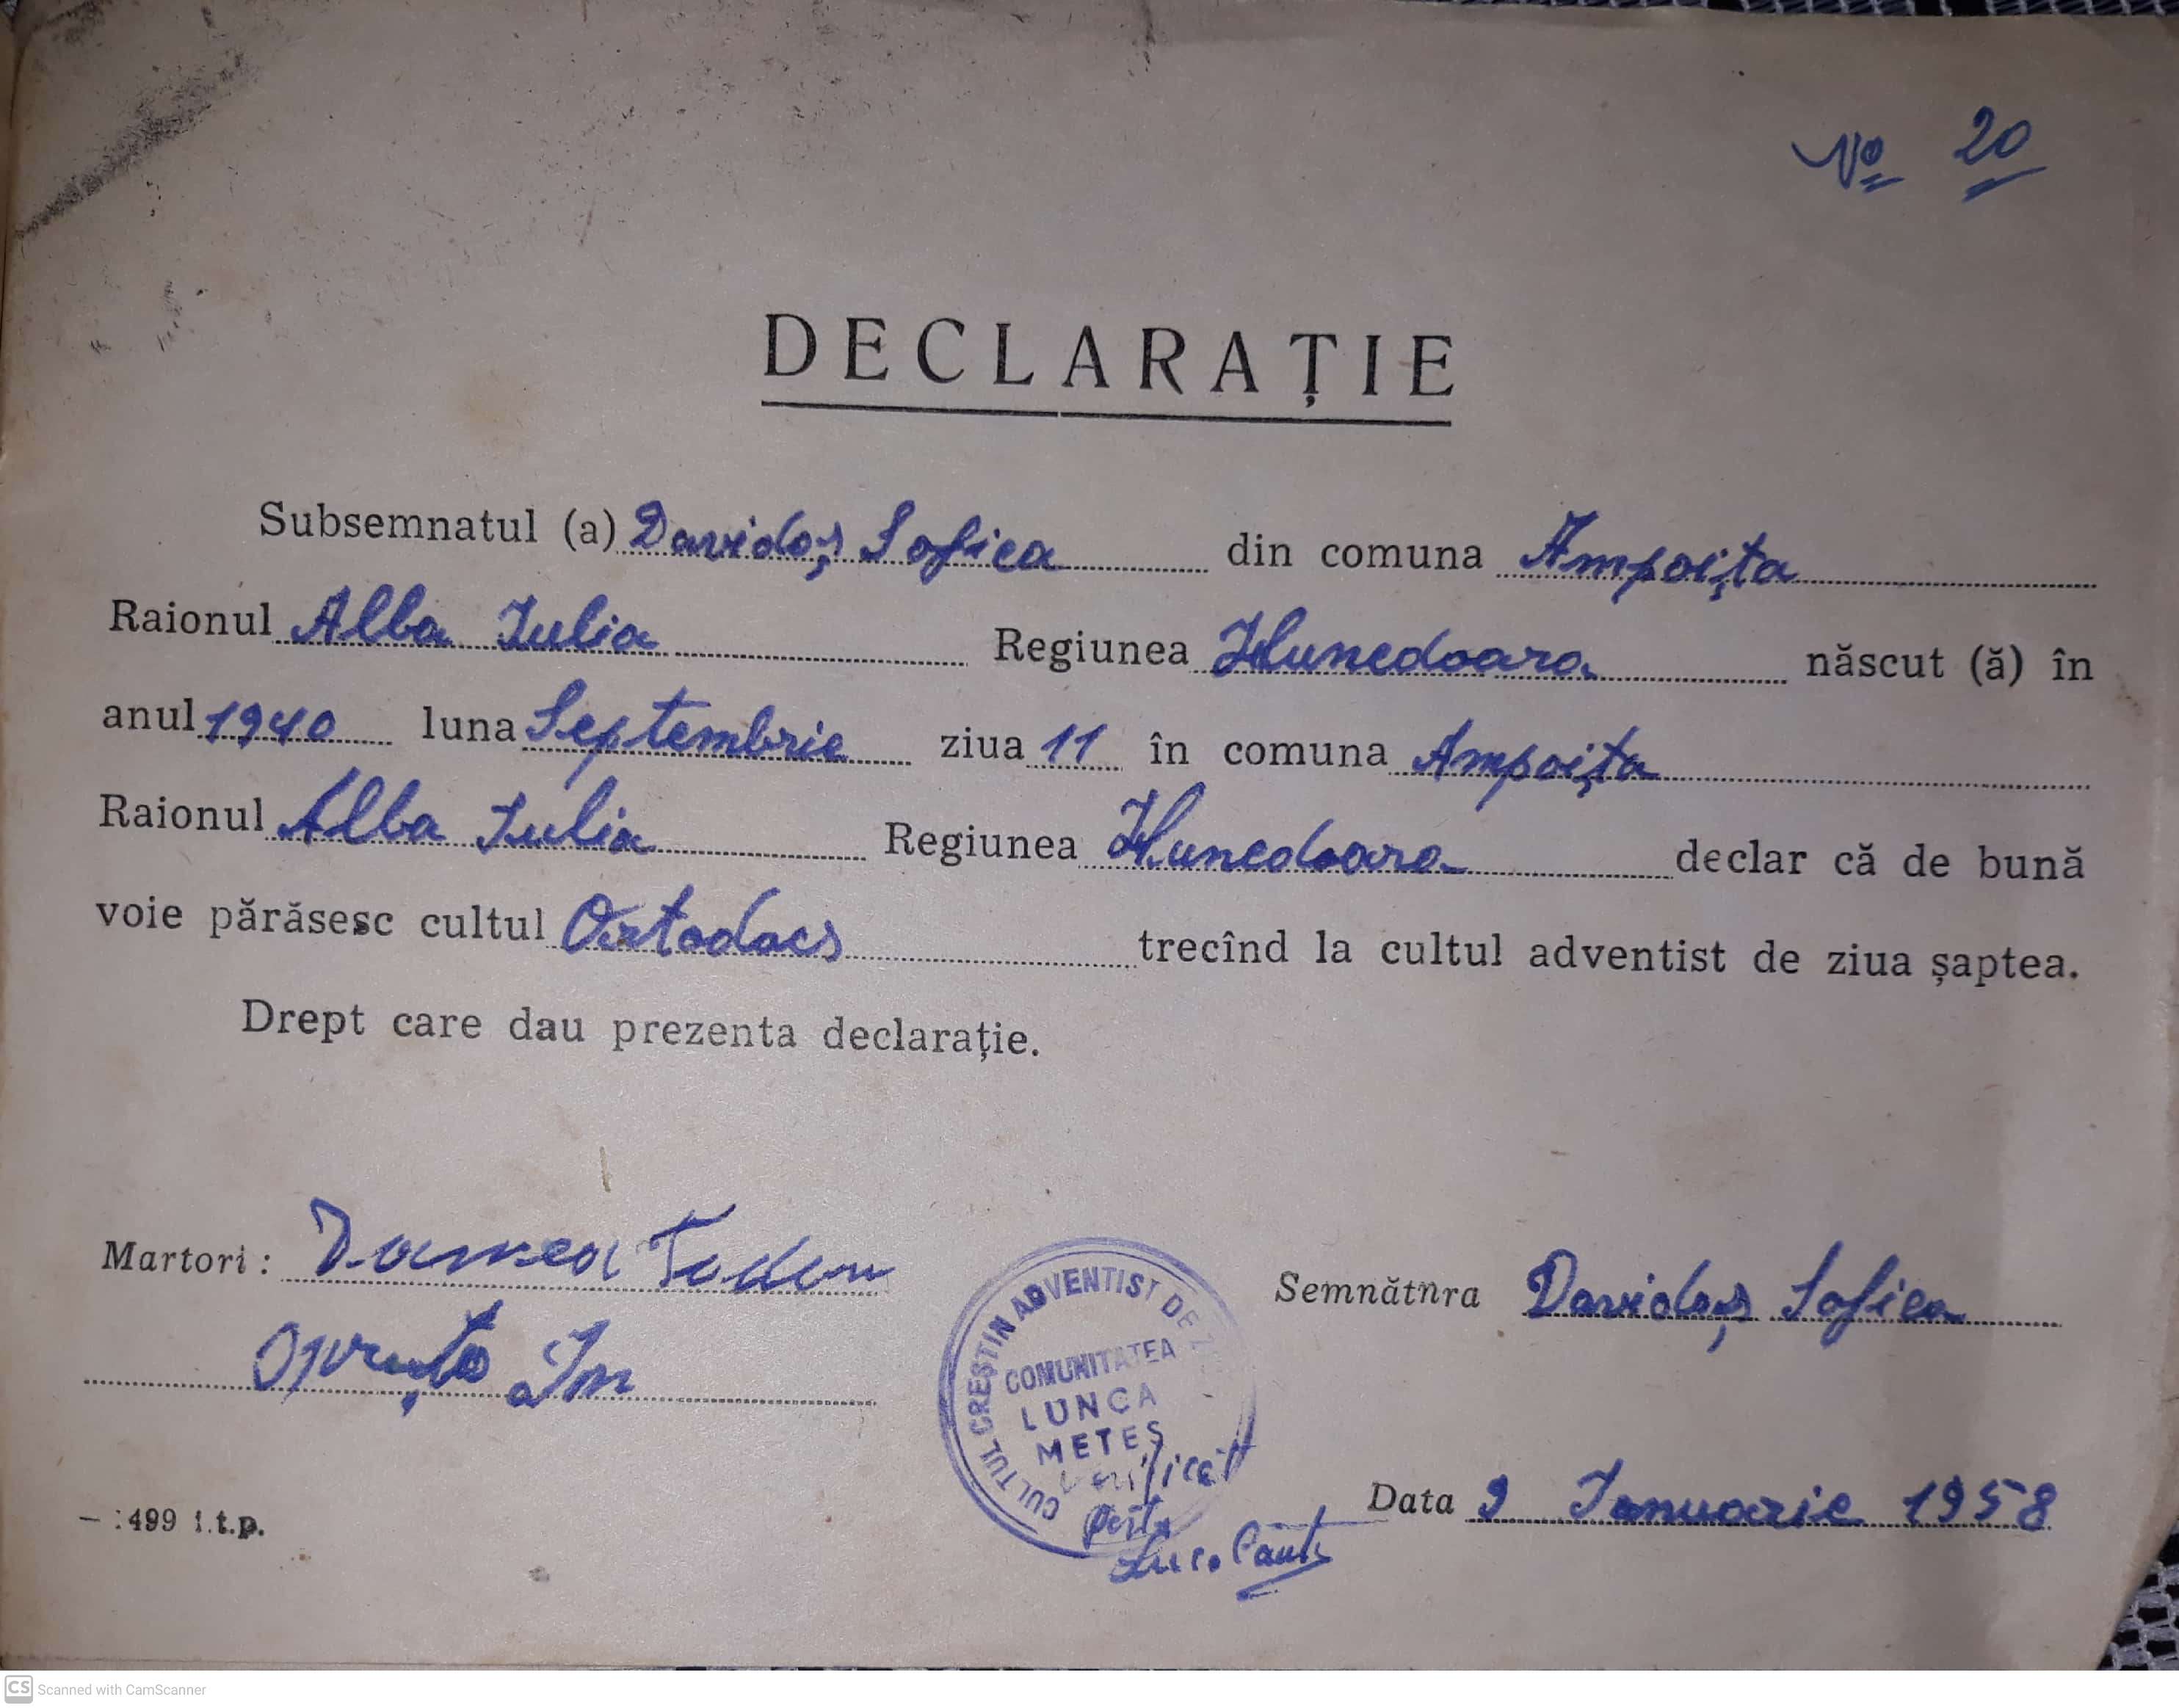 No 20
DECLARAȚIE
Subsemnatul (a) Davidoș Sofica din comuna Ampoița
Raionul Alba Iulia Regiunea Hunedoara născut (ă) în
anul 1940 luna Septembrie ziua 11 în comuna Ampoița
Raionul Alba Iulia Regiunea Hunedoara declar că de bună
voie părăsesc cultul Ortodocs trecînd la cultul adventist de ziua șaptea.
Drept care dau prezenta declarație.
Martori: Todor
Semnătnra Davidoș Sofica
CULTUL CREȘTIN ADVENTIST DE
COMUNITATEA
LUNCA
METEȘ
Verificat
Data 9 Ianuarie 1958
499 i.t.p.
CS Scanned with CamScanner